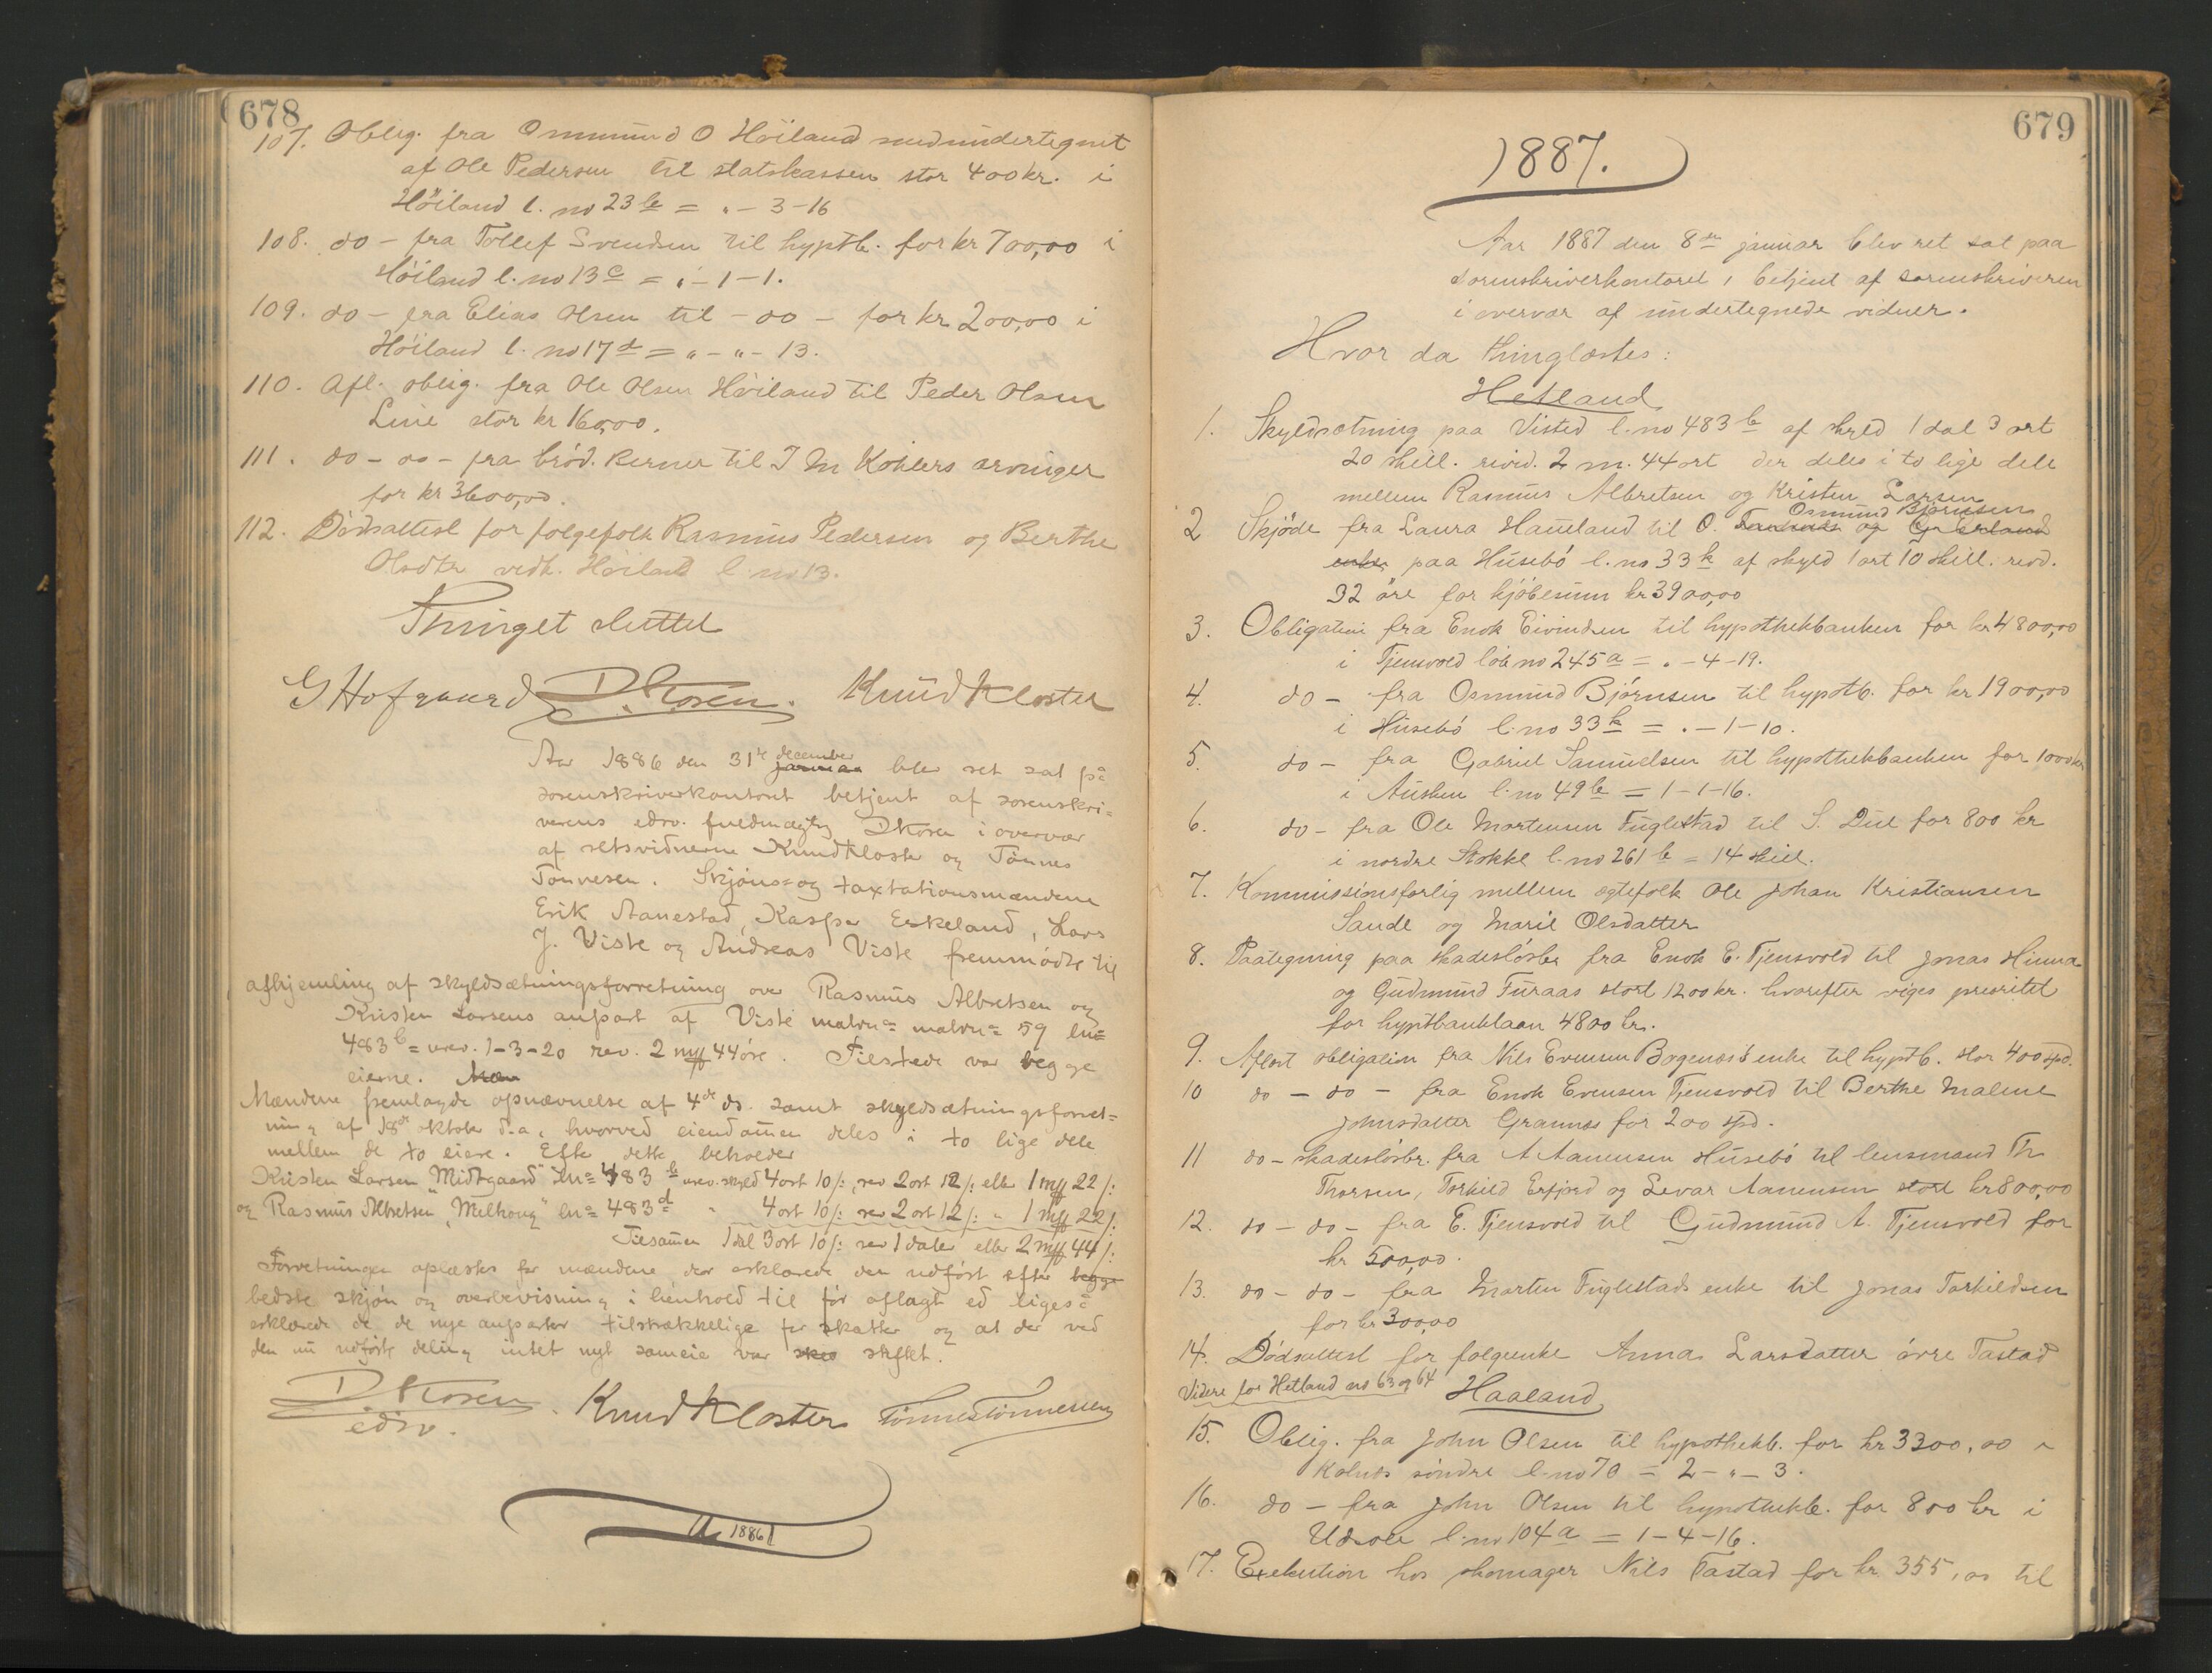 678
107. Oblig. fra Ommund O Höiland medundertegnet
af Ole Pedersen til statskassen stor 400 kr. i
Höiland l. no 23 b = " - 3 - 16
108. do - fra Tollef Svendsen til hyptb. for kr 700,00 i
Höiland l. no 13 c = " - 1 - 1.
109. do - fra Elias Olsen til - do - for kr 200,00 i
Höiland l. no 17 d = " - " - 13.
110. Afl. oblig. fra Ole Olsen Höiland til Peder Olsen
Line stor kr 160,00.
111. do - do - fra bröd. Kerner til I M Kohlers arvinger
for kr 3600,00.
112. Dödsattest for folgefolk Rasmus Pedersen og Berthe
Olsdtr vedk. Höiland l. no 13.
Thinget sluttet
G Hofgaard D. Koren. Knud Kloster
Aar 1886 den 31te januar december blev ret sat på
sorenskriverkontoret betjent af sorenskri=
verens edsv. fuldmægtig D Koren i overvær
af retsvidnerne Knud Kloster og Tönnes
Tönnesen. Skjöns= og taxtationsmændene
Erik Aanestad, Kasper Eskeland, Lars
J. Viste og Andreas Viste fremmödte til
afhjemling af skyldsætningsforretning over Rasmus Albretsen og
Kristen Larsens anpart af Viste matrn= matrn= 59 ln=
483 b = urev. 1-3-20 rev. 2 mk 44 öre. Tilstede var begge
eierne. Mæn
Mændene fremlagde opnævnelse af 4de ds. samt skyldsætningsforret=
ning af 18de oktob d.a., hvorved eiendommen deles i to lige dele
mellem de to eiere. Efter dette beholder
Kristen Larsen "Midtgaard" ln= 483 b urev. skyld 4 ort 10 /: rev 2 ort 12 /: eller 1 mk 22 /:
og Rasmus Albretsen "Melhoug" ln= 483 d " 4 ort 10 /: rev 2 ort 12 /: " 1 mk 22 /:
Tilsammen 1 dal 3 ort 10 /: rev 1 daler eller 2 mk 44 /:
Forretningen oplæstes for mændene der erklærede den udfört efter begge
bedste skjön og overbevisning i henhold til för aflagt ed ligeså
erklærede de de nye anparter tilstrækkelige for skatter og at der ved
den nu udförte deling intet nyt sameie var skev stiftet.
D. Koren
edsv. Knud Kloster Tönnes Tönnesen
1886
679
1887.
Aar 1887 den 8de januar blev ret sat paa
sorenskriverkontoret, betjent af sorenskriveren
i overvær af undertegnede vidner.
Hvor da thinglæstes:
Hetland
1. Skyldsætning paa Visted l. no 483 b af skyld 1 dal 3 ort
20 skill. revid. 2 m. 44 ort der deles i to lige dele
mellem Rasmus Albretsen og Kristen Larsen
2 Skjöde fra Laura Haueland til Osmund Björnsen
paa Husebö l. no 33 k af skyld 1 ort 10 skill. revd.
32 öre for kjöbesum kr 3900,00
3. Obligation fra Enok Eivindsen til hypothekbanken for kr 4800,00
i Tjensvold löb no 245 a = . - 4 - 19.
4. do - fra Osmund Björnsen til hypotb. for kr 1900,00
i Husebö l. no 33 k = . - 1 - 10.
5. do - fra Gabriel Samuelsen til hypothekbanken for 1000 kr
i Ausken l. no 49 b = 1 - 1 - 16.
6. do - fra Ole Mortensen Fuglestad til S. Due for 800 kr
i nordre Stokke l. no 261 b = 14 skill.
7. Kommissionsforlig mellem ægtefolk Ole Johan Kristiansen
Sande og Marie Olsdatter
8. Paategning paa skadeslösbr fra Enok E. Tjensvold til Jonas Hinna
og Gudmund Furaas stort 1200 kr. hvorefter viges prioritet
for hyptbanklaan 4800 kr.
9. Aflæst obligation fra Nils Evensen Bogenæs's enke til hyptb. stor 400 spd.
10 do - do - fra Enok Evensen Tjensvold til Berthe Malene
Johnsdatter Grannes for 200 spd.
11 do - skadeslösbr. fra A Aanensen Husebö til lensmand Th
Thorsen, Torkild Erfjord og Sevar Aanensen stort kr 800,00
12. do - do - fra E. Tjensvold til Gudmund A. Tjensvold for
kr 500,00.
13. do - do - fra Morten Fuglestads enke til Jonas Torkildsen
for kr 300,00
14. Dödsattest for folgeenke Anna Larsdatter övre Tastad
Videre for Hetland no 63 og 64 Haaland
15. Oblig. fra John Olsen til hypothekb. for kr 3300,00 i
Kolnes söndre l. no 70 = 2 - " - 3.
16. do - fra John Olsen til hypothekb. for 800 kr i
Udsole l. no 104 a = 1 - 4 - 16.
17. Exekution hos skomager Nils Tastad for kr 355,00 til